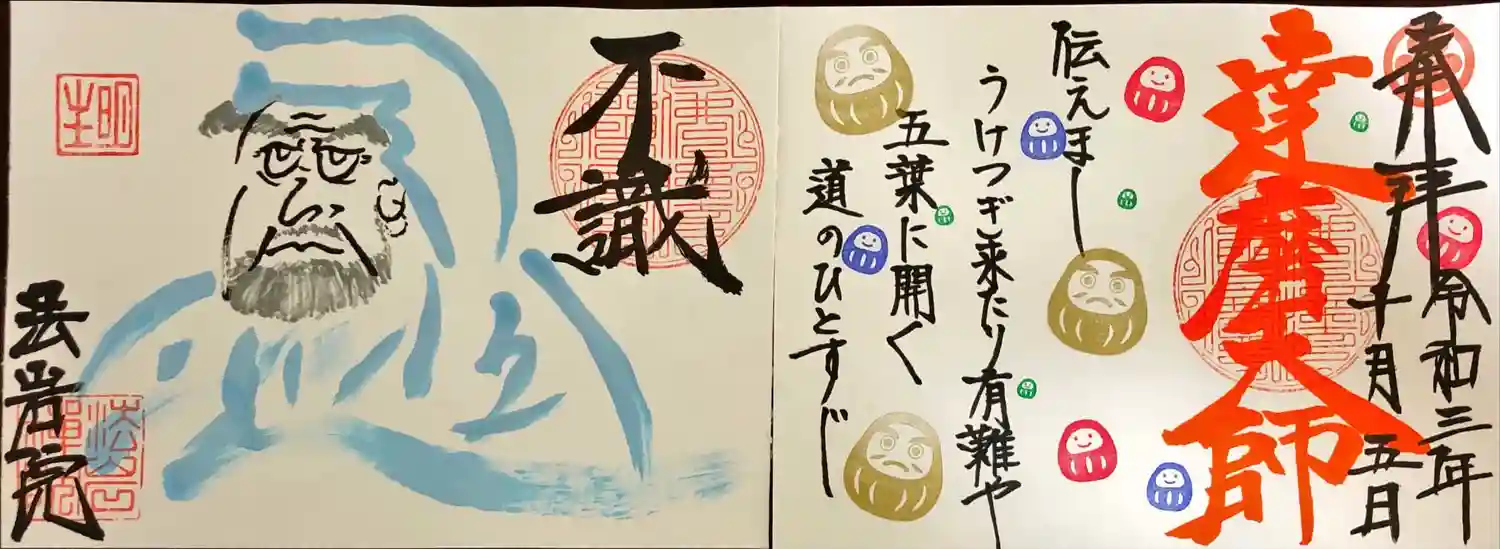 奉拝
令和三年
十月五日
達磨大師
伝えまし
うけつぎ来たり有難や
五葉に開く
道のひとすじ
不識